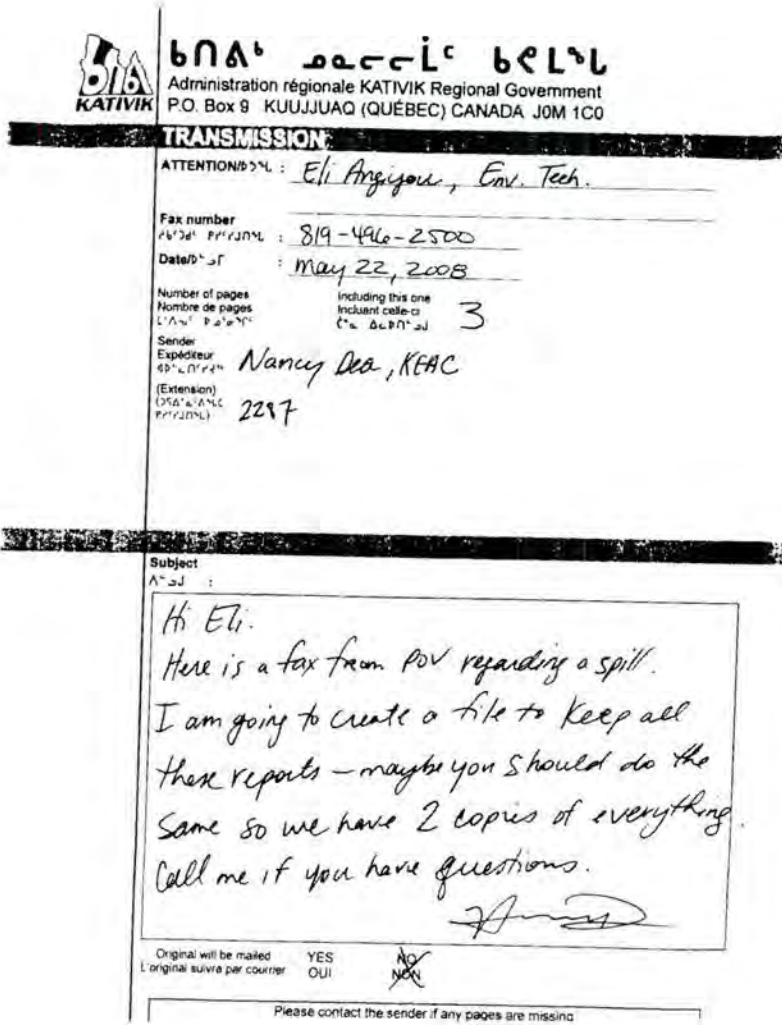 ᑲᑎᕕᒃ ᓄᓇᓕᓕᒫᑦ ᑲᕙᒪᖓ
KATIVIK
Administration régionale KATIVIK Regional Government
P.O. Box 9 KUUJJUAQ (QUÉBEC) CANADA J0M 1C0
TRANSMISSION
ATTENTION/ᐅᑐᖓ : Eli Angiyou, Env. Tech.
Fax number
: 819-496-2500
Date/ᐅᓪᓗᒥ : May 22, 2008
Number of pages Including this one
Nombre de pages Incluant celle-ci 3
Sender
Expéditeur Nancy Dea, KEAC
(Extension)
2287
Subject
Hi Eli.
Here is a fax from POV regarding a spill.
I am going to create a file to keep all
these reports - maybe you should do the
same so we have 2 copies of everything.
Call me if you have questions.
Original will be mailed YES NO
L'original suivra par courrier OUI NON
Please contact the sender if any pages are missing